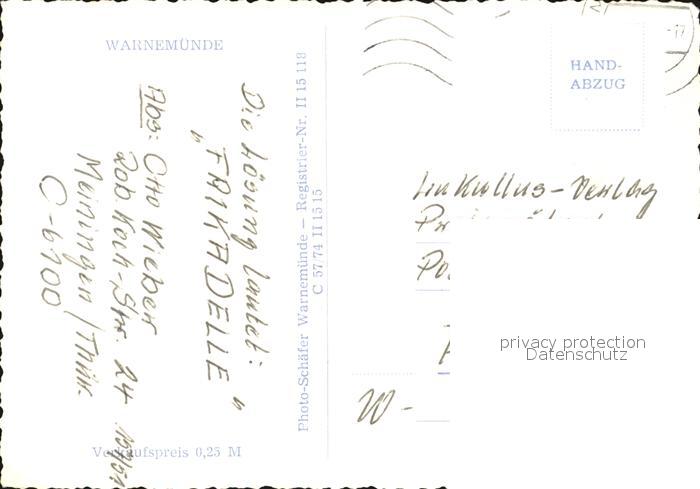 WARNEMÜNDE
Die Lösung lautet:
"FRIKADELLE"
Abs: Otto Wieber
Rob. Koch-Str. 24
Meiningen/Thür.
O-6100
Verkaufspreis 0,25 M
Photo-Schäfer Warnemünde — Registrier-Nr. II 15 113
C 57 74 II 15 15
HAND-
ABZUG
Kullus-Verlag
W-
privacy protection
Datenschutz